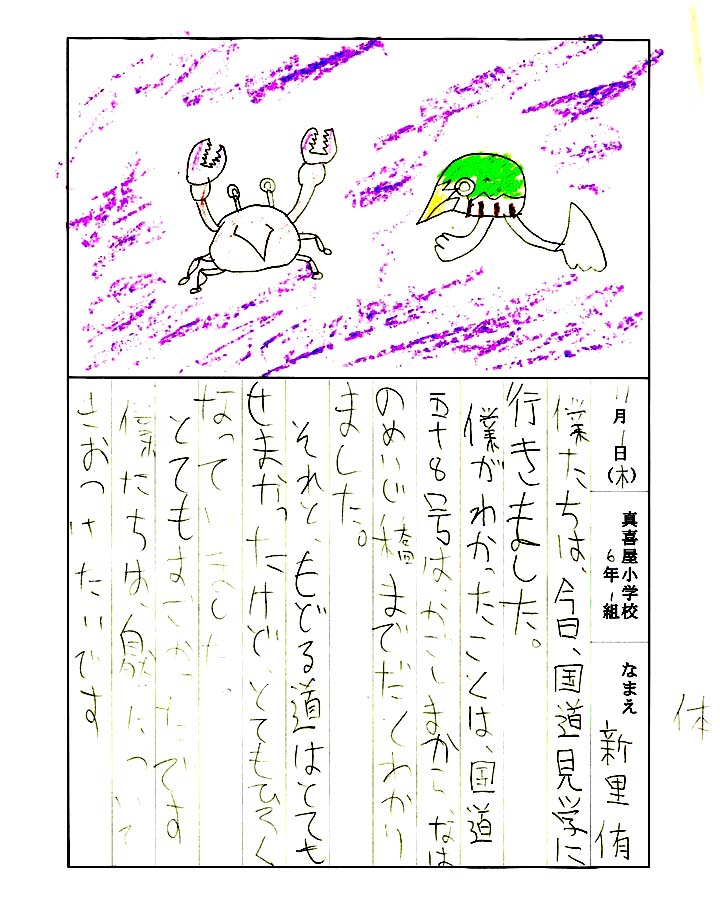 11月1日(木)
真喜屋小学校
6年1組
なまえ 新里 侑
体
僕たちは、今日、国道見学に
行きました。
僕がわかったことは、国道
五十8号は、かごしまから、なは
のめいじ橋までだとわかり
ました。
それと、もどる道はとても
せまかったけど、とてもひろく
なっていました。
とてもすごかったです
僕たちは、自然について
さおつけたいです